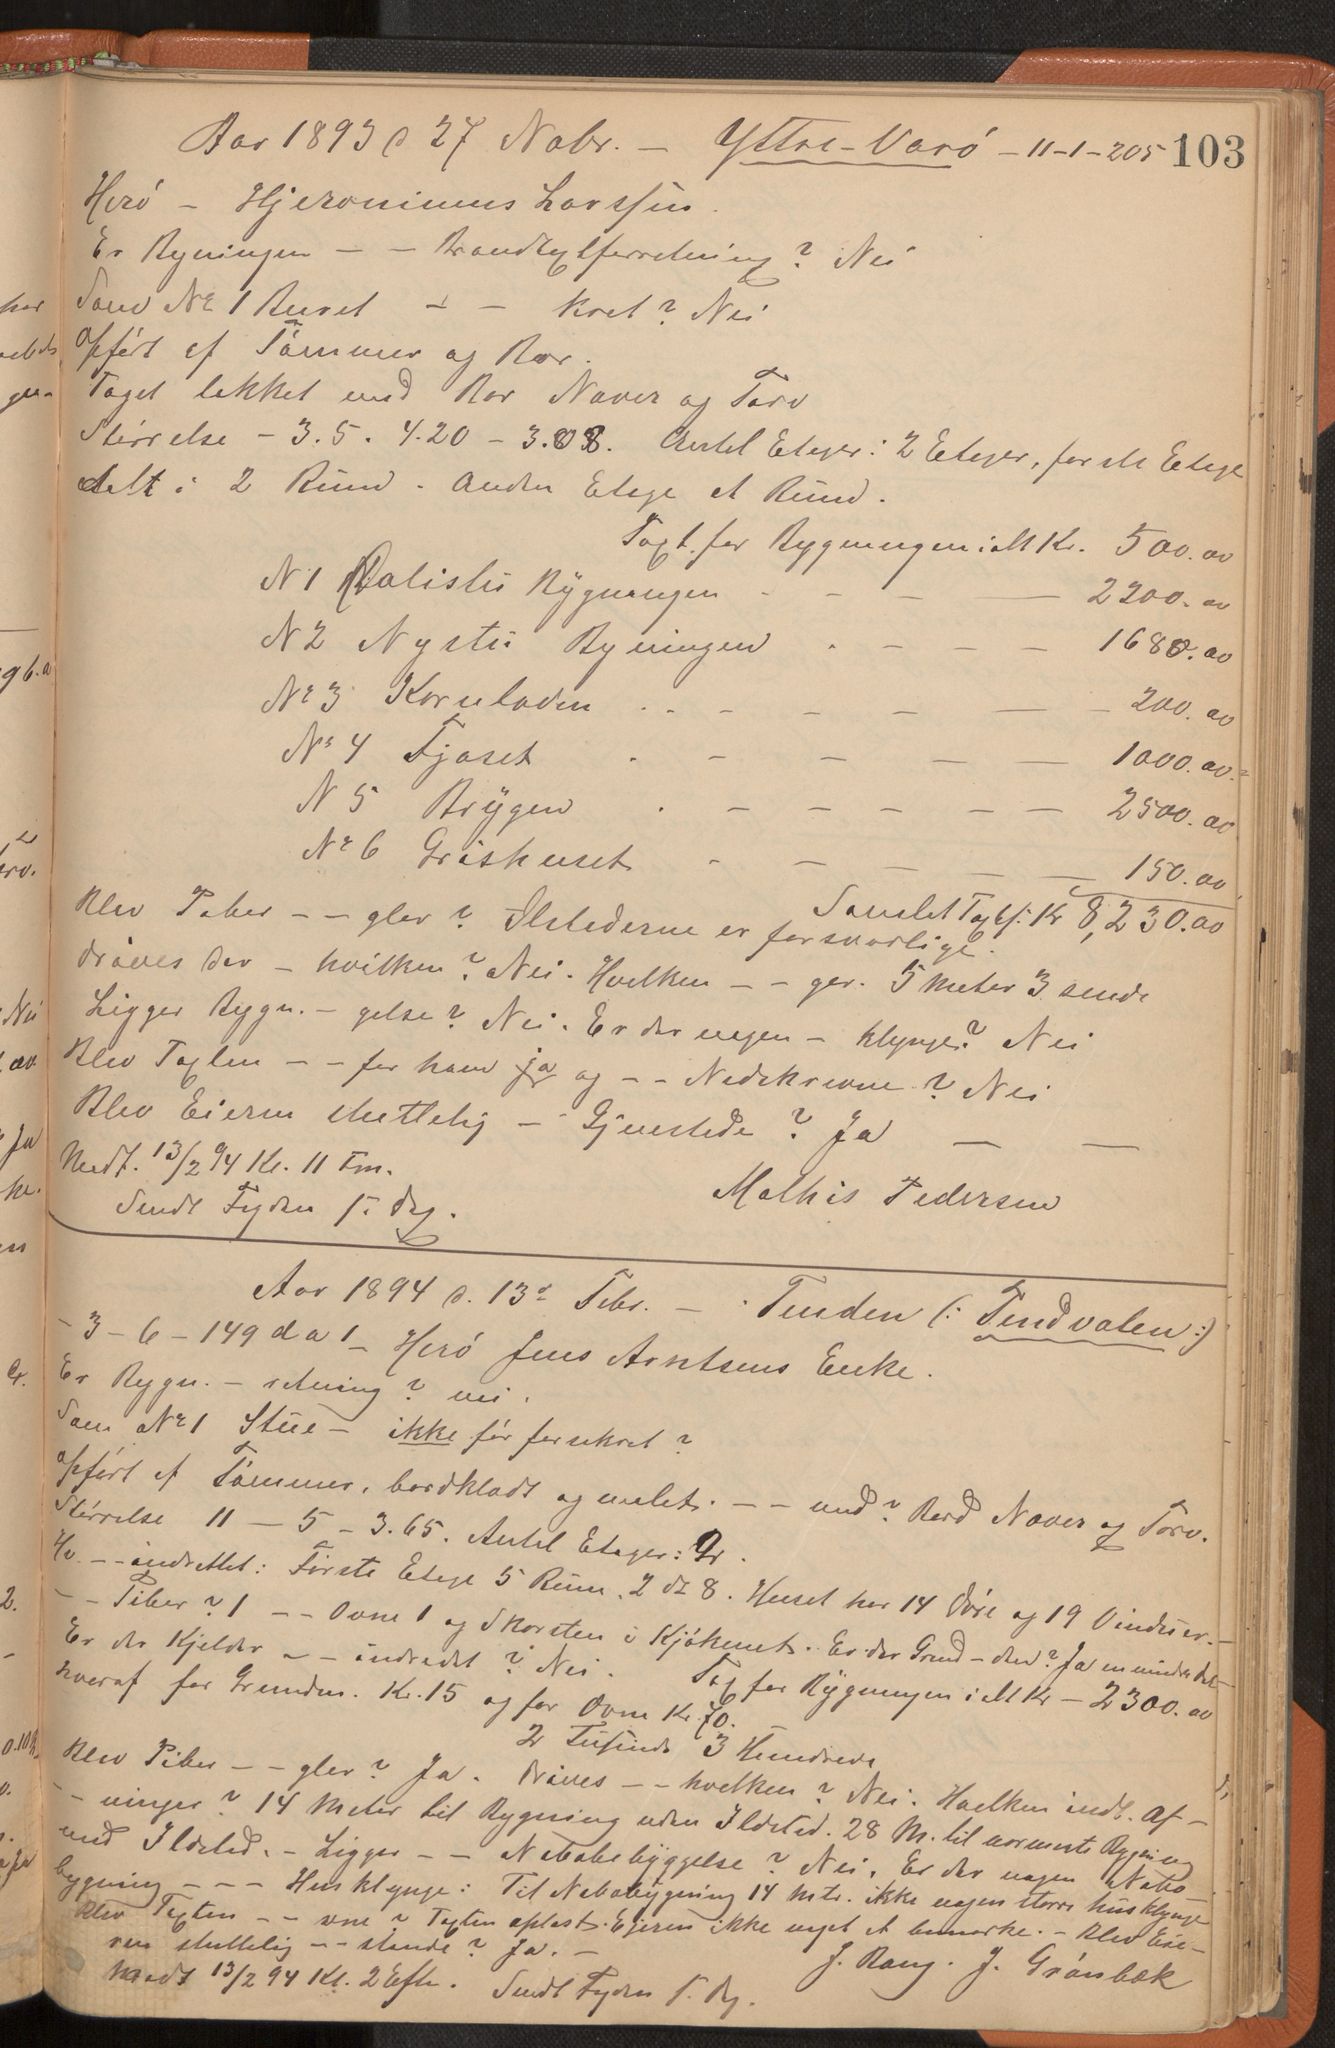 Aar 1893 d 27 Nobr. — Yttre-Varö — 11-1-205 103
Herö — Hjeronimus Larssen.
Er Bygningen — — Brandtaxtforretning? Nei
Som No 1 Buret — — kret? Nei
opfört af Tömmer og Bor.
Taget tekket med Bor Never og Torv
Störrelse — 3.5. 4.20 — 3.08. Antal Etager: 2 Etager, förste Etage
delt i 2 Rum. Anden Etage et Rum.
Taxt for Bygningen ialt Kr. 500.00
N 1 Bygningen - - - — 2200.00
N 2 Nystu Bygningen . - - - 1680.00
No 3 Kornladen . - - - — 200.00
No 4 Fjoset . - - - — 1000.00
N 5 Bryggen . - - - - — 2500.00
No 6 Grishuset - - - — 150.00
Samlet Taxt: Kr 8,230.00
Blev Piber — — gler? Ilstederne er forsvarlige.
Drives der — hvilken? Nei. Hvilken — — ger. 5 Meter 3 sende
Ligger Bygn. — gelse? Nei. Er der nogen — klynge? Nei
Blev Taxten — — for ham ja og — — Nedskrevne? Nei
Blev Eieren skettelig — Gjenstede? Ja — —
Medt. 13/2 94 Kl. 11 Fm.
Mathis Pedersen
Sendt Fogden s. Dag.
Aar 1894 d. 13d Febr. — Tenden (: Tendvalen :)
- 3 - 6 - 149 da 1 — Herö Jens Arntsens Enke.
Er Bygn. — retning? nei.
Som No 1 Stue — ikke för forsikret?
opfört af Tömmer, bordklædt og malet. — — med? Bord Never og Torv.
Störrelse 11 — 5 — 3.65. Antal Etager: 2.
Hv — — indrettet: Förste Etage 5 Rum, 2 d: 8. Huset har 14 Döre og 19 Vinduer. —
— — Piber? 1 — — Ovne 1 og Skorsten i Kjökenet. Er der Grund — den? Ja en mindre del —
Er der Kjelder — — indredet? Nei. Tax for Bygningen ialt Kr — 2300.00
hveraf for Grunden. Kr. 15 og for Ovne Kr. 70.
2 Tusinde 3 Hundrede
Blev Piber — — gler? Ja. Drives — — hvilken? Nei. Hvilken indb. Af —
— ninger? 14 Meter til Bygning uden Ildsted. 28 M. til nærmeste Bygning
med Ildsted. — Ligger — — Nabobebyggelse? Nei. Er der nogen Nabo —
bygning — — — Husklynge: Til Nabobygning 14 Mtr. ikke nogen större husklynge
Blev Taxten — — vne? Taxten oplæst. Eieren ikke noget at bemærke. — Blev Eie —
ren skettelig — — stande? Ja. —
J. Rang. J. Grönbæk
Medt 13/2 94 Kl. 2 Eftm. Sendt Fogden s. Dag.